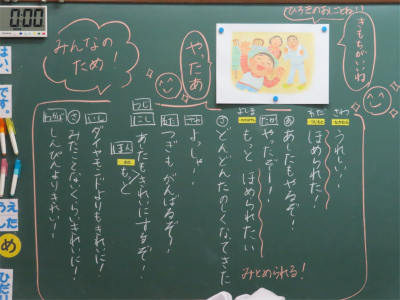 0:00
ひろきのおしごとね!!
きもちがいいね
みんなの
ため!
やったあ
さわ
うれしい!
ほめられた!
あしたもやるぞ!
やったぞー!
よしき
もっとほめられたい
どんどんたのしくなってきた
みとめられる!
よっしゃー!
つぎもがんばるぞー!
つじ
にし
あしたもきれいにするぞ!
ほん
もっと
にし
ダイヤモンドよりもきれいに!
みたことないくらいきれいに!
しんぴんよりきれい!
はい、
です。
うえ
した
め
ひだり